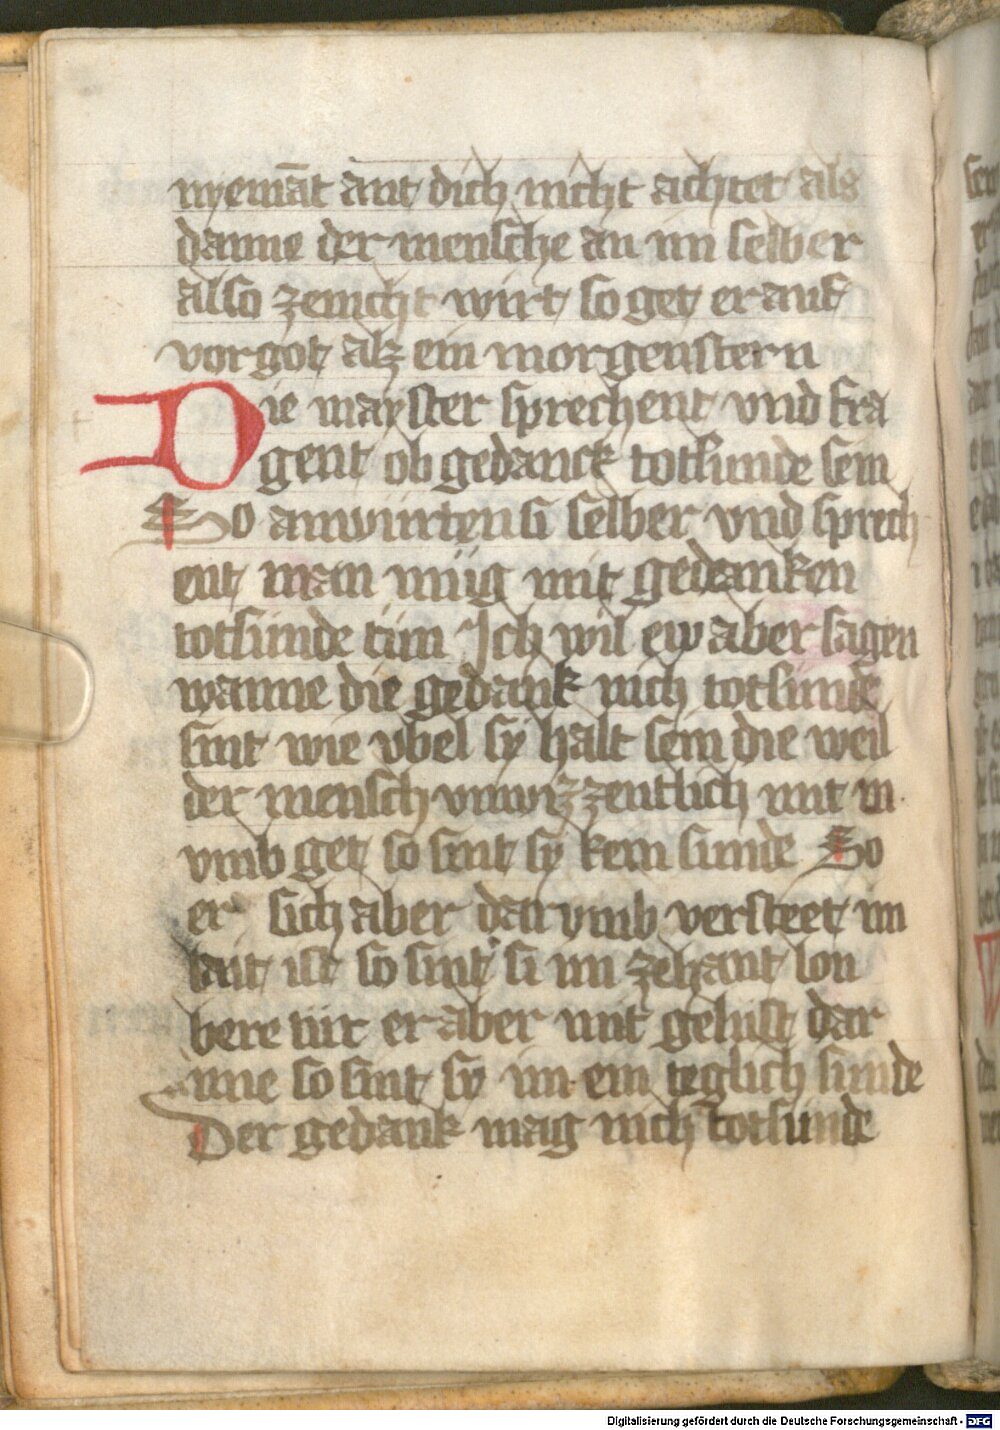 nyemāt ant dich nicht achtet als
danne der mensche an im selber
also zenicht wirt so get er auf
vor got alz ein morgenstern
Die mayster sprechent vnd fra
gent ob gedanck totsunde sein
So antwürten si selber vnd sprech
ent man müg mit gedanken
totsünde tün Ich wil ew aber sagen
wanne die gedank nich totsünde
sint wie vbel sy halt sein die weil
der mensch vnwizzentlich mit in
vmb get so sint sy kein sunde So
er sich aber darvmb versteet im
lait ist so sint si im zehant lon
bere wir er aber mit gelust dar
inne so sint sy im ein teglich sunde
Der gedank mag nich totsünde
Digitalisierung gefördert durch die Deutsche Forschungsgemeinschaft - DFG